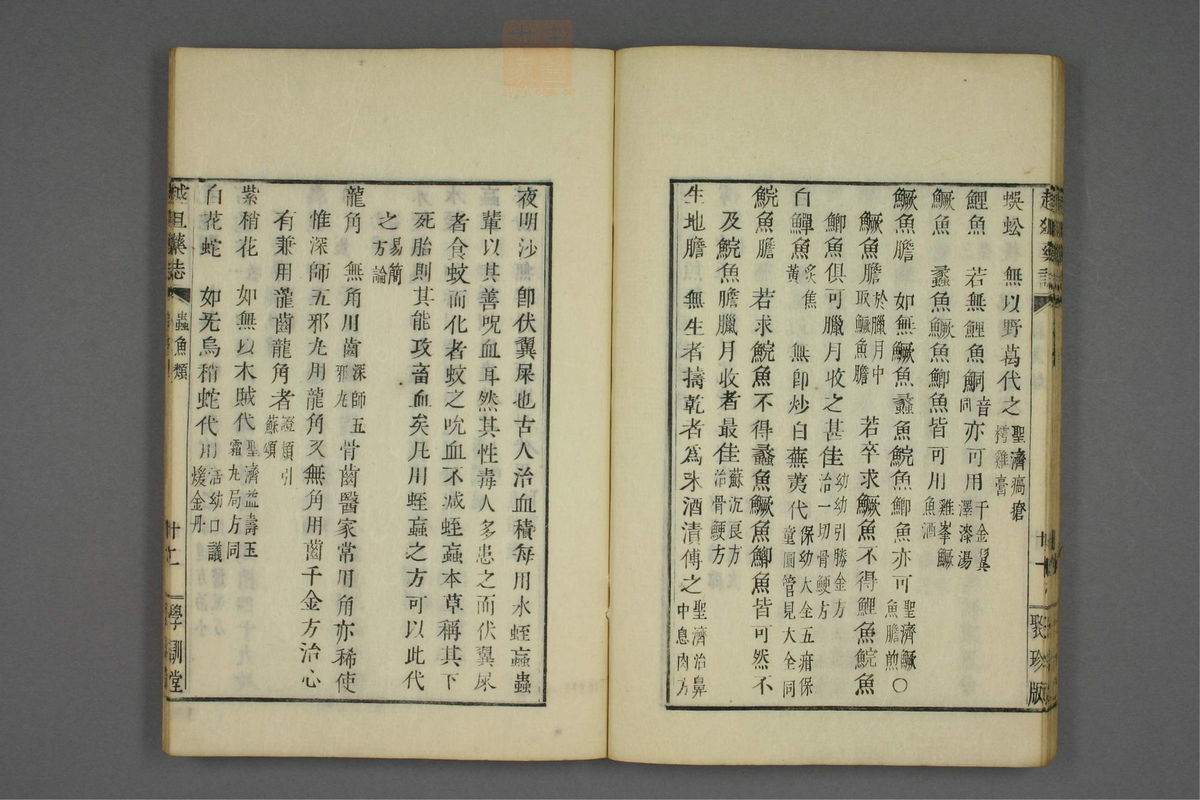 蜈蚣 無以野葛代之 聖濟瘑瘡樗雞膏
鯉魚 若無鯉魚鮦音同亦可用 千金鬢澤漆湯
鱖魚 蠡魚鱖魚鯽魚皆可用 雞峯鱖魚酒
鱖魚膽 如無鱖魚蠡魚鯇魚鯽魚亦可 聖濟鱖魚膽煎〇
鱖魚膽 於臘月中取鱖魚膽 若卒求鱖魚不得鯉魚鯇魚
鯽魚俱可臘月收之甚佳 幼幼引勝金方治一切骨鯁方
白鱓魚 炙焦黃 無卽炒白蕪荑代 保幼大全五疳保童圓管見大全同
鯇魚膽 若求鯇魚不得蠡魚鱖魚鯽魚皆可然不
及鯇魚膽臘月收者最佳 蘇沉良方治骨鯁方
生地膽 無生者擣乾者爲末酒漬傅之 聖濟治鼻中息肉方
聚珍版
夜明沙無 卽伏翼屎也古人治血積每用水蛭蝱蟲
輩以其善吮血耳然其性毒人多患之而伏翼屎
者食蚊而化者蚊之吮血不減蛭蝱本草稱其下
死胎則其能攻畜血矣凡用蛭蝱之方可以此代
之 易簡方論
龍角 無角用齒 深師五邪丸 骨齒醫家常用角亦稀使
惟深師五邪丸用龍角又無角用齒千金方治心
有兼用龍齒龍角者 證類引蘇頌
紫稍花 如無以木賊代 聖濟益壽玉霜丸局方同
白花蛇 如无烏稍蛇代用 活幼口議煖金丹
蟲魚類
十二
學訓堂